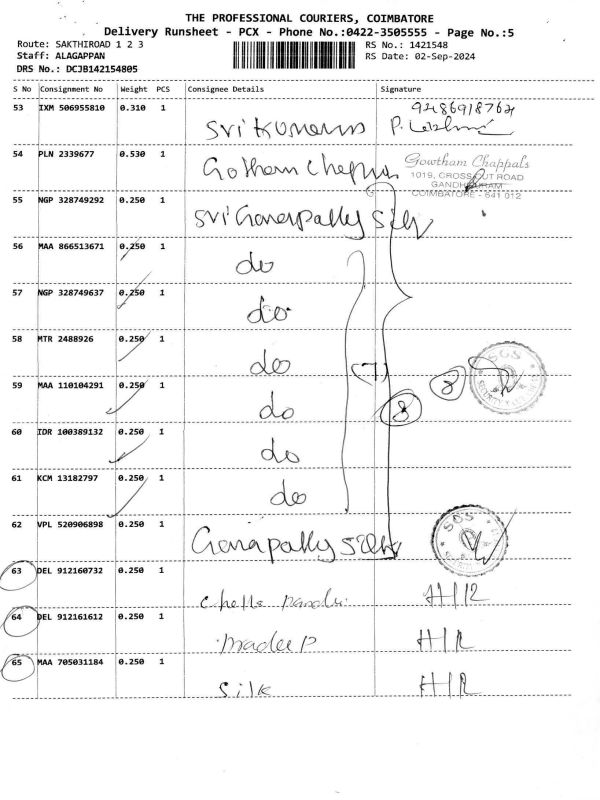 THE PROFESSIONAL COURIERS, COIMBATORE
Delivery Runsheet - PCX - Phone No.:0422-3505555 - Page No.:5
Route: SAKTHIROAD 1 2 3 RS No.: 1421548
Staff: ALAGAPPAN RS Date: 02-Sep-2024
DRS No.: DCJB142154805
S No Consignment No Weight PCS Consignee Details Signature
53 IXM 506955810 0.310 1
54 PLN 2339677 0.530 1 Gowtham Chappals
1019, CROSS CUT ROAD
GANDHIPURAM
COIMBATORE - 641 012
55 NGP 328749292 0.250 1
56 MAA 866513671 0.250 1 do
57 NGP 328749637 0.250 1 do
58 MTR 2488926 0.250 1 do (7) SGS
59 MAA 110104291 0.250 1 do 8 8
60 IDR 100389132 0.250 1 do
61 KCM 13182797 0.250 1 do
62 VPL 520906898 0.250 1 Ganapathy silk SGS
63 DEL 912160732 0.250 1 H/R
64 DEL 912161612 0.250 1 H/R
65 MAA 705031184 0.250 1 silk H/R